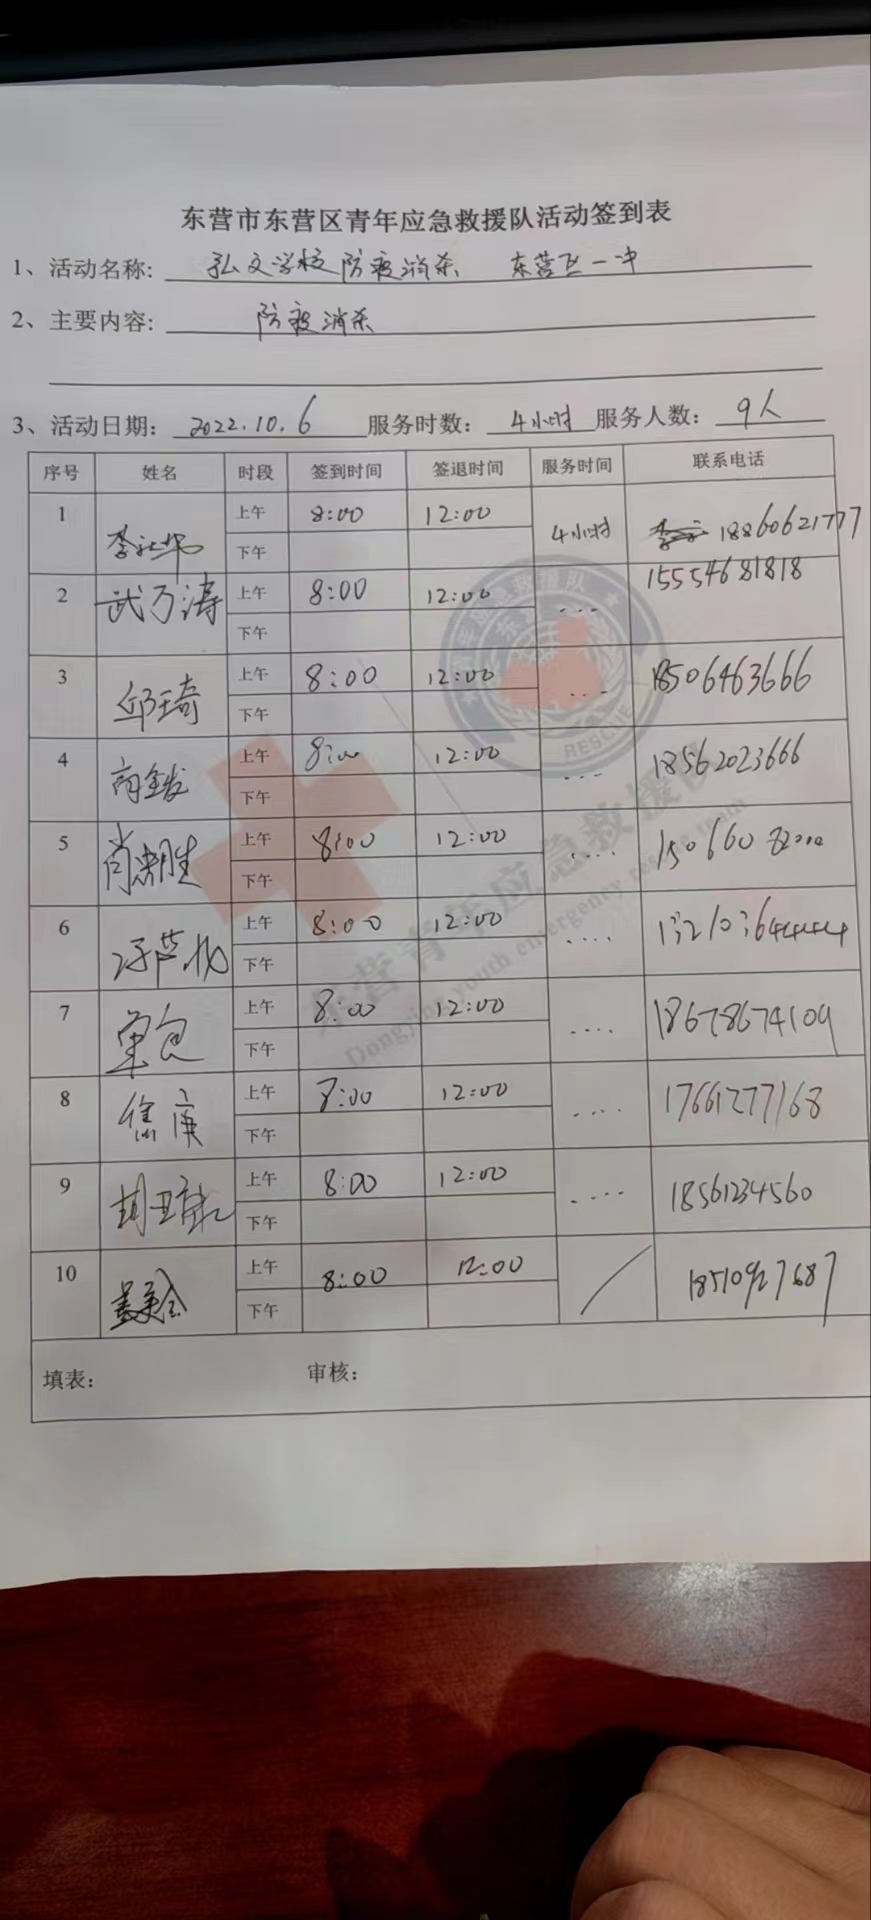 东营市东营区青年应急救援队活动签到表
1、活动名称: 弘文学校防疫消杀 东营区一中
2、主要内容: 防疫消杀
3、活动日期: 2022.10.6 服务时数: 4小时 服务人数: 9人
序号 姓名 时段 签到时间 签退时间 服务时间 联系电话
1 上午 8:00 12:00 4小时 18860621777
下午
2 武乃涛 上午 8:00 12:00 .... 15554681818
下午
3 邱琦 上午 8:00 12:00 .... 18506463666
下午
4 上午 8:00 12:00 .... 18562023666
下午
5 上午 8:00 12:00 ....
下午
6 上午 8:00 12:00 ....
下午
7 上午 8:00 12:00 .... 18678674109
下午
8 焦庚 上午 8:00 12:00 .... 17661277168
下午
9 上午 8:00 12:00 .... 18561234560
下午
10 上午 8:00 12:00 /
下午
填表: 审核:
东营青年应急救援队
Dongying youth emergency rescue team
RESCUE